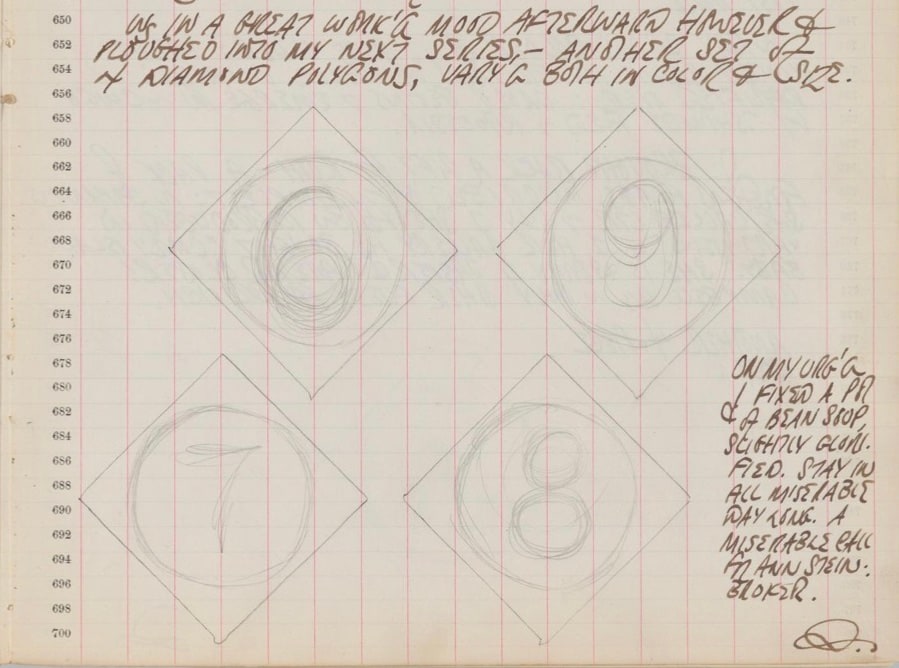 650 ING IN A GREAT WORK'G MOOD AFTERWARD HOWEVER &
652 PLOUGHED INTO MY NEXT SERIES,— ANOTHER SET OF
654 4 DIAMOND POLYGONS, VARY'G BOTH IN COLOR & SIZE.
656
658
660
662
664
666
668
670
672
674
676
678
680
682
684
686
688
690
692
694
696
698
700
6 9
7 8
ON MY URG'G
I FIXED A
& A BEAN SOUP,
SLIGHTLY GLORI-
FIED. STAY IN
ALL MISERABLE
DAY LONG. A
MISERABLE CALL
FM ANN STEIN-
BROKER.